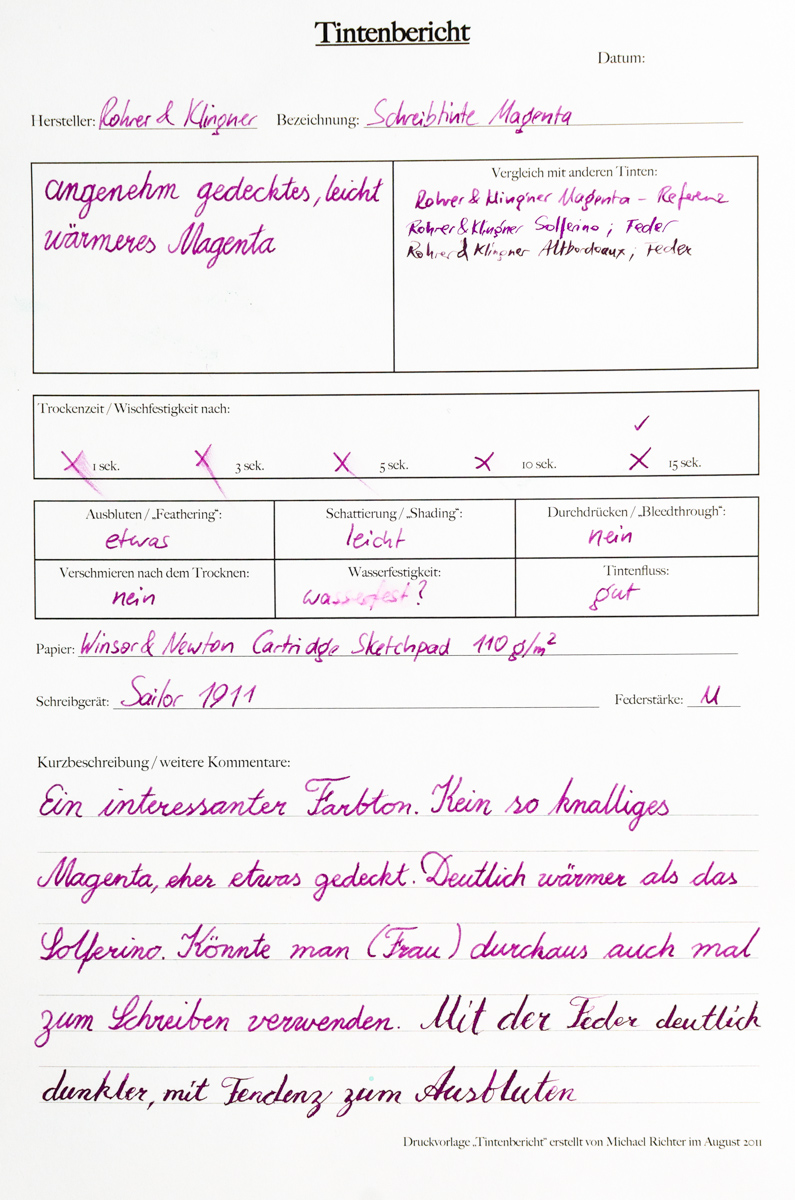 Tintenbericht
Datum:
Hersteller: Rohrer & Klingner Bezeichnung: Schreibtinte Magenta
angenehm gedecktes, leicht
wärmeres Magenta
Vergleich mit anderen Tinten:
Rohrer & Klingner Magenta - Referenz
Rohrer & Klingner Solferino; Feder
Rohrer & Klingner Altbordeaux; Feder
Trockenzeit / Wischfestigkeit nach:
✓
X 1 sek. X 3 sek. X 5 sek. X 10 sek. X 15 sek.
Ausbluten / „Feathering": Schattierung / „Shading": Durchdrücken / „Bleedthrough":
etwas leicht nein
Verschmieren nach dem Trocknen: Wasserfestigkeit: Tintenfluss:
nein wasserfest? gut
Papier: Winsor & Newton Cartridge Sketchpad 110 g/m²
Schreibgerät: Sailor 1911 Federstärke: M
Kurzbeschreibung / weitere Kommentare:
Ein interessanter Farbton. Kein so knalliges
Magenta, eher etwas gedeckt. Deutlich wärmer als das
Solferino. Könnte man (Frau) durchaus auch mal
zum Schreiben verwenden. Mit der Feder deutlich
dunkler, mit Tendenz zum Ausbluten
Druckvorlage „Tintenbericht" erstellt von Michael Richter im August 2011